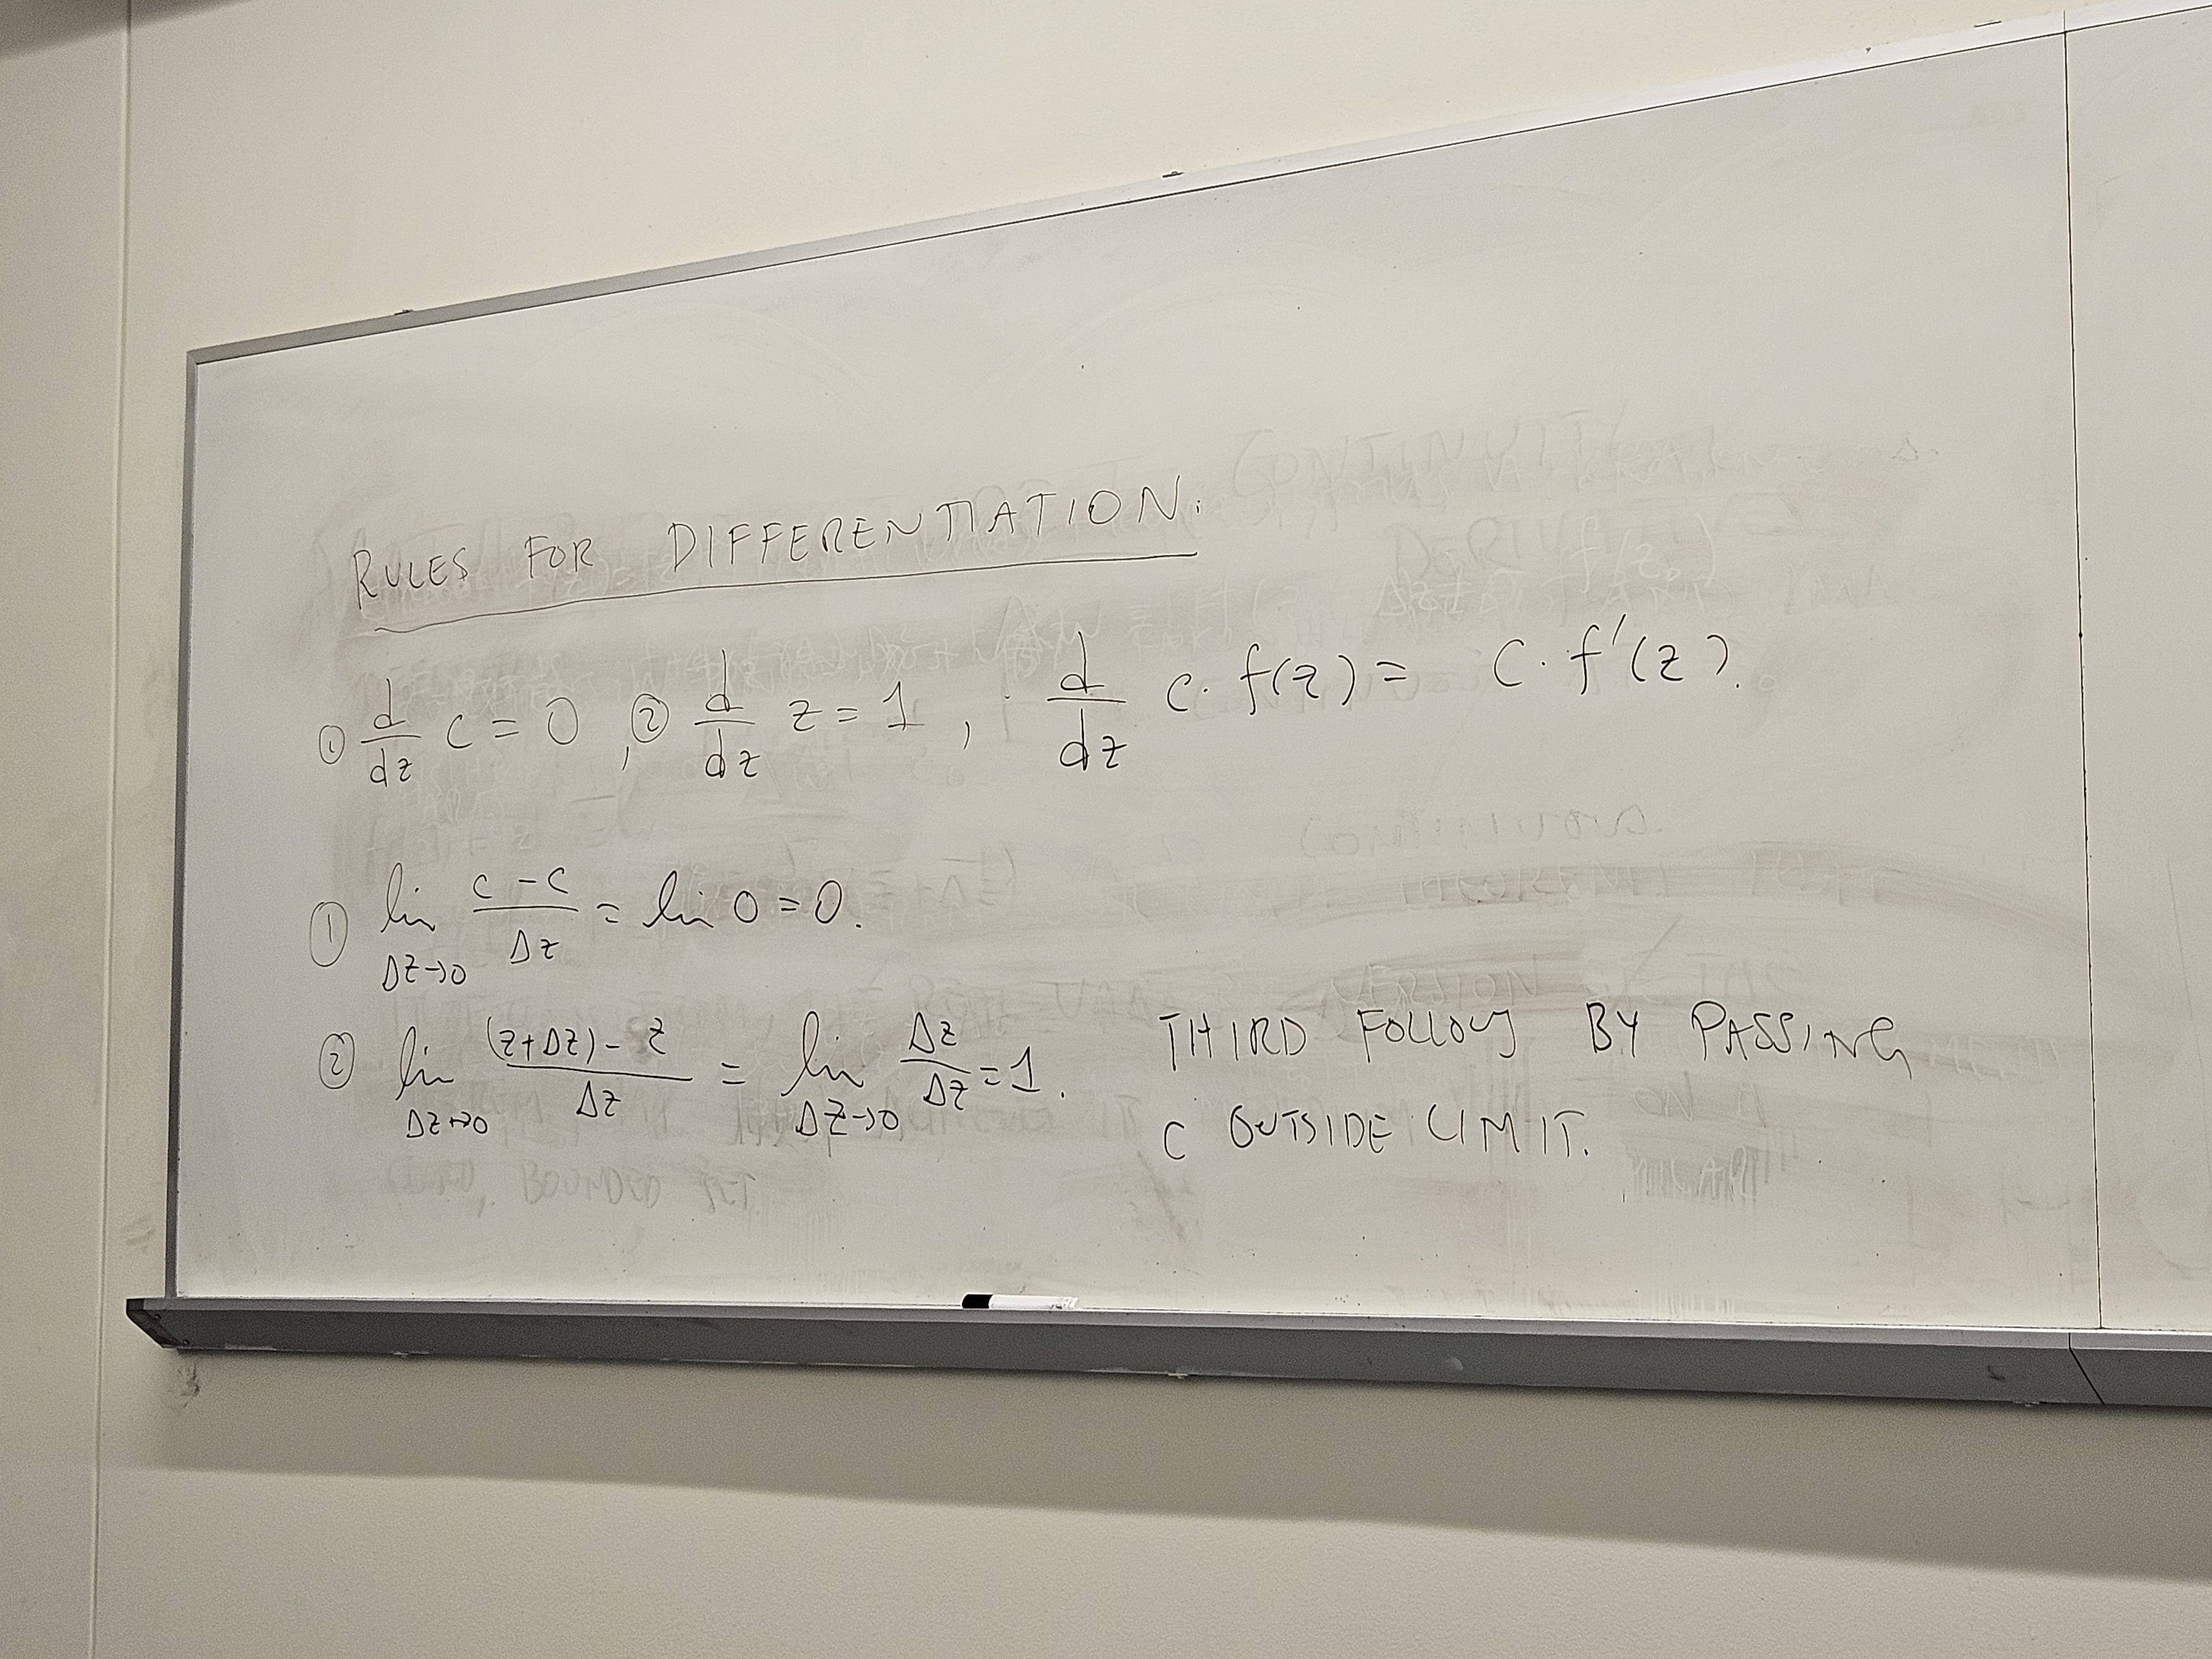 RULES FOR DIFFERENTIATION.
① d/dz c = 0 , ② d/dz z = 1 , d/dz c · f(z) = c · f'(z).
① lim Δz→0 (c - c)/Δz = lim 0 = 0.
② lim Δz→0 ((z+Δz) - z)/Δz = lim Δz→0 Δz/Δz = 1.
THIRD FOLLOWS BY PASSING
C OUTSIDE LIMIT.
CONTINUITY
BOUNDED SET